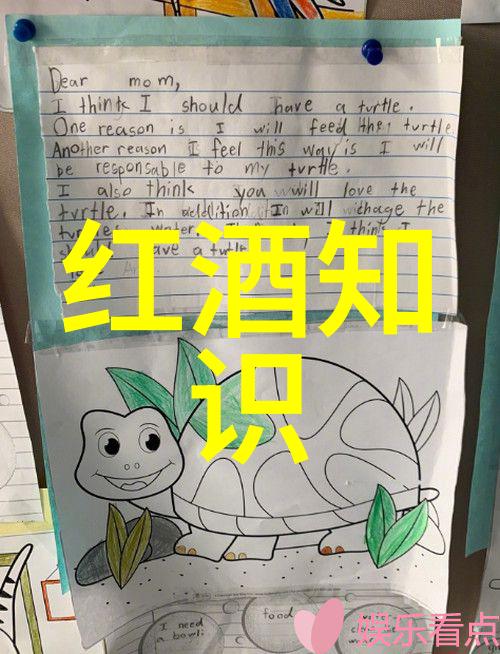 Dear mom,
I think I should have a turtle.
One reason is I will feed the turtle.
Another reason I feel this way is I will
be responsable to my turtle.
I also think you will love the
turtle. In addition In will chage the
I think I
ave a turtle
红酒知
识
I need
a bowl
food
娱乐看点